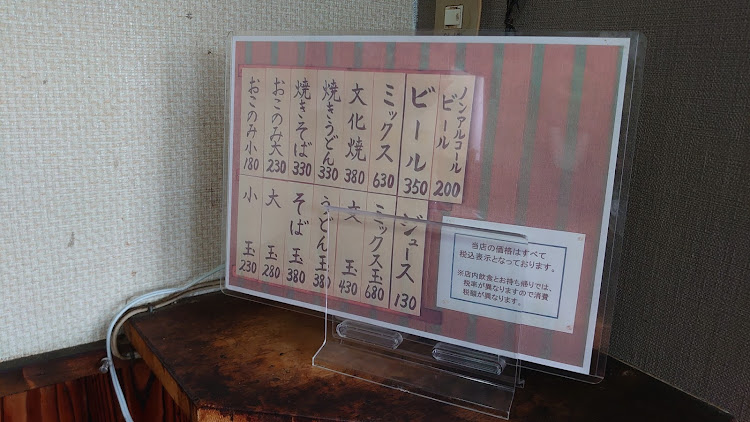 ノンアルコール
ビール
200
ビール
350
ミックス
630
文化焼
380
焼きうどん
330
焼きそば
330
おこのみ大
230
おこのみ小
180
ジュース
130
ミックス玉
680
文 玉
430
うどん玉
380
そば 玉
380
大 玉
280
小 玉
230
当店の価格はすべて
税込表示となっております。
※店内飲食とお持ち帰りでは、
税率が異なりますので消費
税額が異なります。